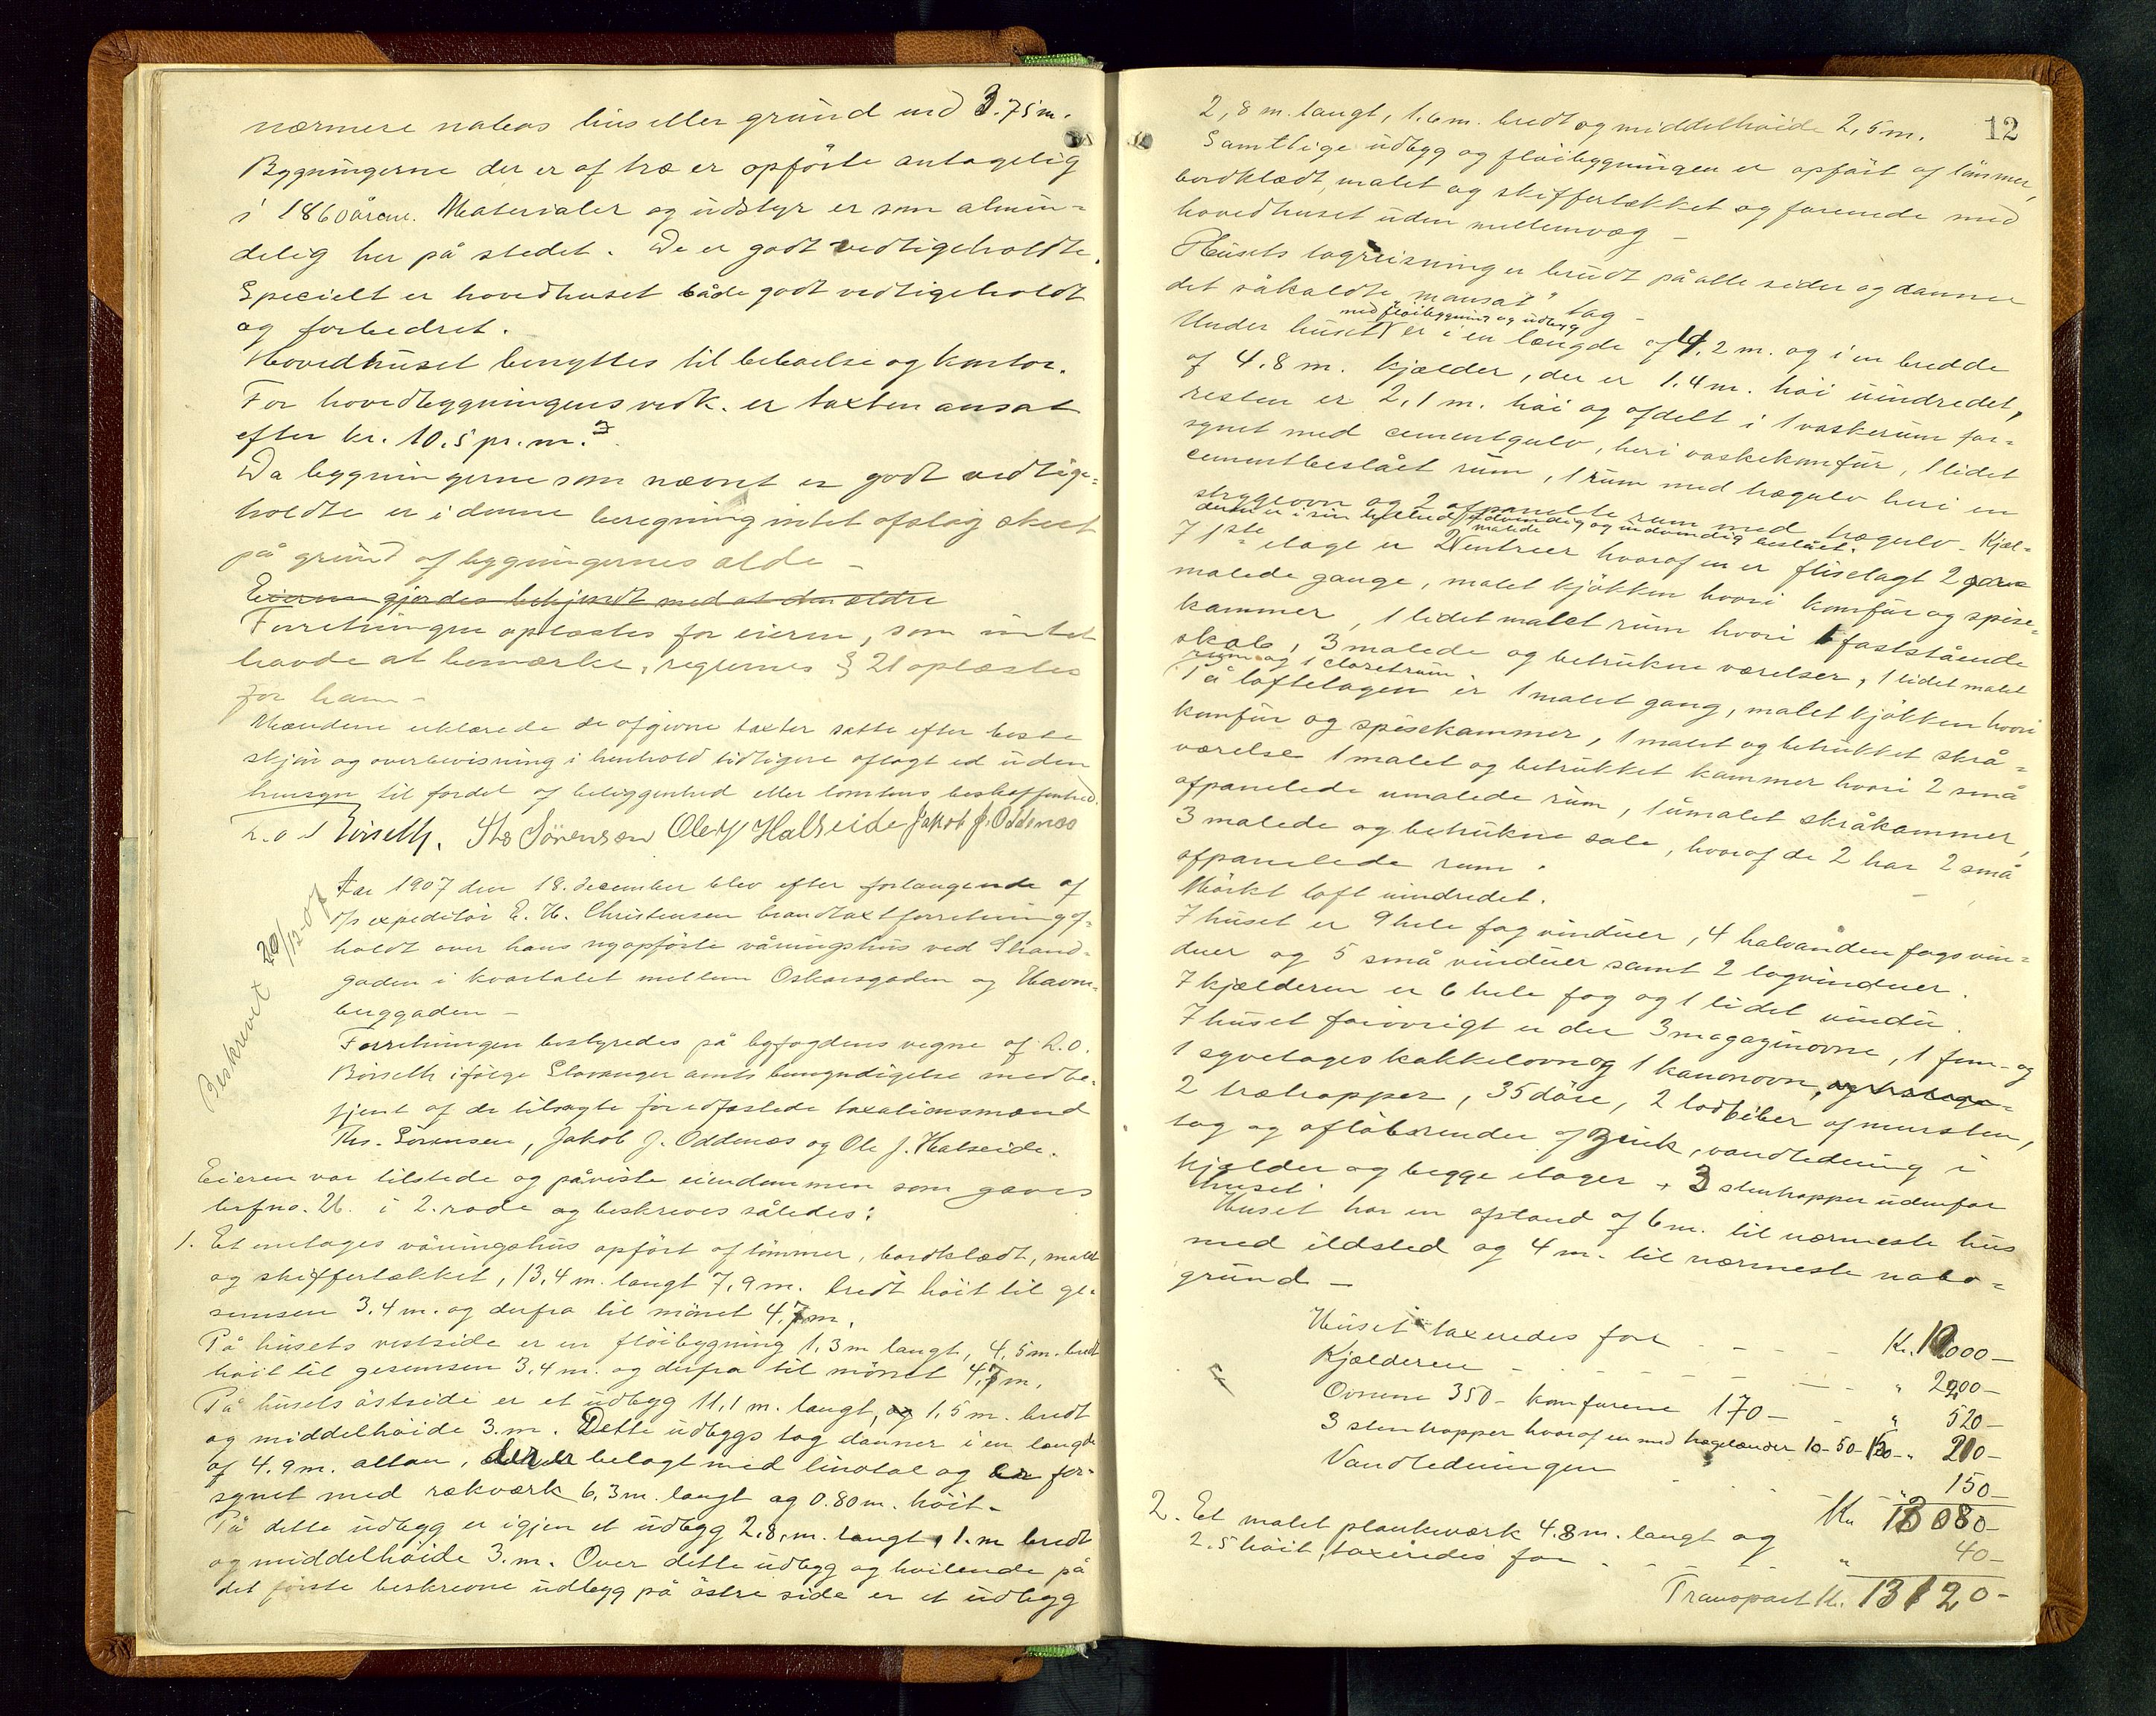 nærmere nabos hus eller grund end 3.75 m.
Bygningerne der er af træ er opförte antagelig
i 1860 årene. Materialer og udstyr er som almin-
delig her på stedet. De er godt vedligeholdte.
Specielt er hovedhuset både godt vedligeholdt
og forbedret.
Hovedhuset benyttes til beboelse og kontor.
For hovedbygningens vedk. er taxten ansat
efter kr. 10.5 pr. m.³
Da bygningerne som nævnt er godt vedlige-
holdte er i denne beregning intet afslag skeet
på grund af bygningernes alder –
Eieren gjordes bekjendt med at den ældre
Forretningen oplæstes for eieren, som intet
havde at bemærke, reglernes § 21 oplæstes
for ham –
Mændene erklærede de afgivne taxter satte efter beste
skjön og overbevisning i henhold tidligere aflagt ed uden
hensyn til fordel af beliggenhed eller tomtens beskaffenhed.
R. O. Börseth. Ths Sörensen Ole J Halseide Jakob J. Oddenæs
Beskrevet 20/12-07
Aar 1907 den 18. december blev efter forlangende af
D/s expeditör E. H. Christensen brandtaxtforretning af-
holdt over hans nyopförte våningshus ved Strand-
gaden i kvartalet mellem Oskarsgaden og Havne-
berggaden –
Forretningen bestyredes på byfogdens vegne af R. O.
Börseth ifölge Stavanger amts bemyndigelse med be-
tjent af de tilsagte for edfæstede taxationsmænd
Ths. Sörensen, Jakob J. Oddenæs og Ole J. Halseide.
Eieren var tilstede og påviste eiendommen som gaves
brfno. 26. i 2. rode og beskreves således:
1. Et enetages våningshus opfört af tömmer, bordklædt, malet
og skiffertækket, 13,4 m. langt 7,9 m. bredt höit til ge-
semsen 3.4 m. og derfra til mönet 4.7 m.
På husets vestside er en flöibygning 1,3 m langt, 4,5 m. bredt
höit til gesemsen 3.4 m. og derfra til mönet 4.7 m.
På husets östside er et udbygg 11,1 m. langt, og 1,5 m. bredt
og middelhöide 3. m. Dette udbyggs tag danner i en længde
af 4.9 m. altan, der er belagt med linotal og er for-
synet med rækværk 6,3 m. langt og 0.80 m. höit –
På dette udbygg er igjen et udbygg 2.8. m. langt, 1. m bredt
og middelhöide 3. m. Over dette udbygg og hvilende på
det förste beskrevne udbygg på östre side er et udbygg
12
2,8 m. langt, 1.6 m. bredt og middelhöide 2,5 m.
Samtlige udbygg og flöibygningen er opfört af tömmer,
bordklædt, malet og skiffertækket og forenede med
hovedhuset uden mellemvæg –
Husets tagreisning er brudt på alle sider og danner
det såkaldte "mansat" tag –
med flöibygning og udbygg
Under huset er i en længde af 14,2 m. og i en bredde
af 4.8 m. kjælder, der er 1.4 m. höi uindredet,
resten er 2,1 m. höi og afdelt i 1 vaskerum for-
synet med cementgulv, heri vaskekomfür, 1 lidet
cementbeslået rum, 1 rum med trægulv heri en
strygeovn og 2 afpanelte rum med trægulv – Kjæl-
deren er i sin helhed udvendig og indvendig beslået.
malede
I 1ste etage er 2 entreer hvoraf en er fliselagt 2
malede gange, malet kjökken hvori komfür og spise-
kammer, 1 lidet malet rum hvori 1 faststående
skab, 3 malede og betrukne værelser, 1 lidet malet
rum og 1 closetrum
På loftetagen er 1 malet gang, malet kjökken hvori
komfür og spisekammer, 1 malet og betrukket skrå-
værelse 1 malet og betrukket kammer hvori 2 små
afpanelede umalede rum, 1 umalet skråkammer,
3 malede og betrukne sale, hvoraf de 2 har 2 små
afpanelede rum.
Mörkt loft uindredet.
I huset er 9 hele fag vinduer, 4 halvanden fags vin-
duer og 5 små vinduer samt 2 tagvinduer.
I kjælderen er 6 hele fag og 1 lidet vindu.
I huset forövrigt er der 3 magazinovne, 1 fem- og
1 syvetages kakkelovn og 1 kanonovn,
2 trætrapper, 35 döre, 2 lodpiber af mursten,
tag og aflöbsrender af zink, vandledning i
kjælder og begge etager + 3 stentrapper udenfor
huset.
Huset har en afstand af 6 m. til nærmeste hus
med ildsted og 4 m. til nærmeste nabo-
grund –
Huset taxeredes for – – – Kr. 10000 –
Kjælderen – – – – – – " 2200 –
Ovnene 350 – komfurene 170 – – " 520 –
3 stentrapper hvoraf en med trægelænder 10 – 50 – 150 – " 210 –
Vandledningen – – – " 150 –
Kr 13080 –
2. Et malet plankeværk 4.8 m. langt og
2.5 höit, taxeredes for – – – " 40 –
Transport Kr. 13120 –